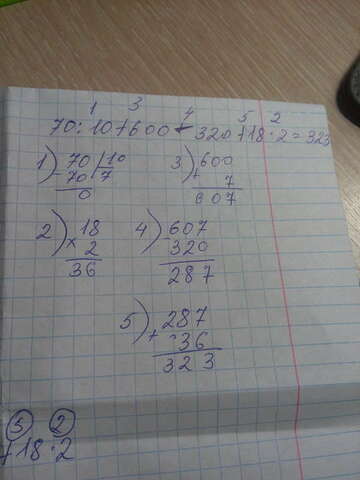 1 3 4 5 2
70:10+600-320+18·2=323
1) 70 | 10
- 70 | 7
0
3) 600
+ 7
607
2) 18
× 2
36
4) -607
320
287
5) 287
+ 36
323
5 2
+18·2